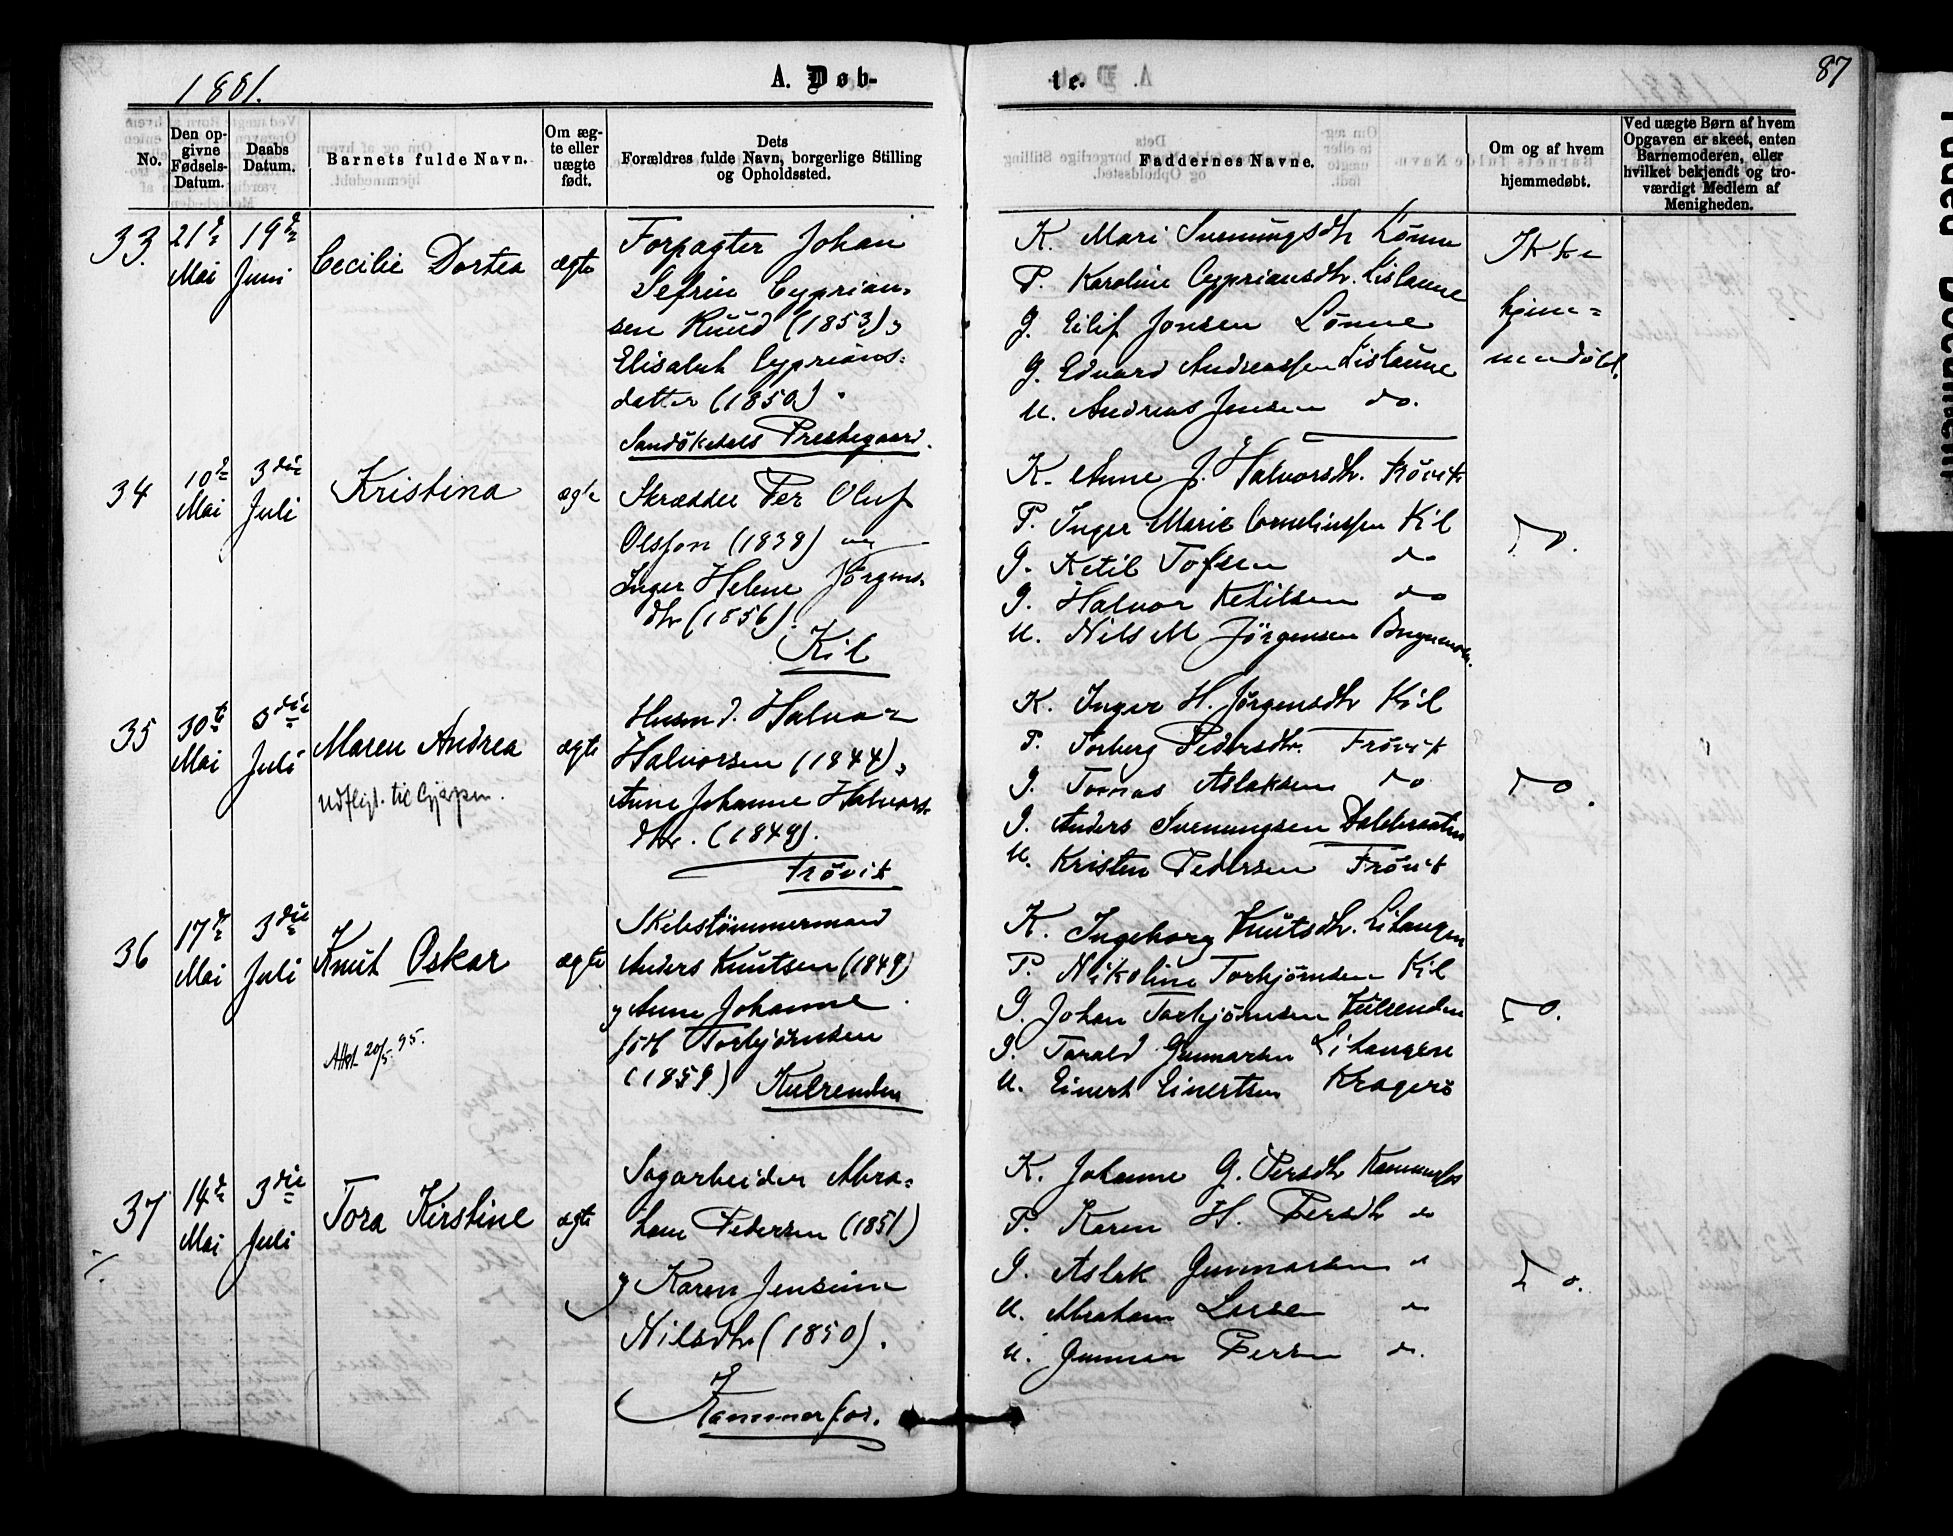 1881.
A. Døb-
te.
87
No.
Den op-
givne
Fødsels-
Datum.
Daabs
Datum.
Barnets fulde Navn.
Om æg-
te eller
uægte
født.
Dets
Forældres fulde Navn, borgerlige Stilling
og Opholdssted.
Faddernes Navne.
Om og af hvem
hjemmedøbt.
Ved uægte Børn af hvem
Opgaven er skeet, enten
Barnemoderen, eller
hvilket bekjendt og tro-
værdigt Medlem af
Menigheden.
33.
21de
Mai
19de
Juni
Cecilie Dortea
ægte
Forpagter Johan
Sefrin Cyprian-
sen Ruud (1853),
Elisabet Cyprians-
datter (1850).
Sandökedals Prestegaard.
K. Mari Svenungsdtr Lönne
P. Karoline Cypriansdtr.
G. Eilif Jonsen Lönne
G. Edvard Andreassen
U. Andreas Jensen do.
Ikke
hjem-
medöbt.
34
10de
Mai
3die
Juli
Kristina
ægte
Skrædder Per Oluf
Olsson (1838) og
Inger Helene Jörgens-
dtr (1856).
Kil
K. Anne J. Halvorsdtr. Frövik
P. Inger Marie Corneliussen Kil
G. Ketil Tofsen do
G. Halvor Ketilsen do
U. Nils M Jörgensen
Do.
35
30te
Mai
3die
Juli
Maren Andrea
Udflyt. til Gjerpen.
ægte
Husmd. Halvor
Halvorsen (1844),
Anne Johanne Halvors-
dtr. (1849).
Frövik
K. Inger H. Jörgensdtr Kil
P. Torberg Pedersdtr. Frövik
G. Tomas Aslaksen do
G. Anders Svenungsen Dalsbraaten
U. Kristen Pedersen Frövik
Do.
36
17de
Mai
3die
Juli
Knut Oskar
Attst. 20/5 95.
ægte
Skibstömmermand
Anders Knutsen (1849)
og Anne Johanne
födt Torbjörnsen
(1859) Kurenden
K. Ingeborg Knutsdtr. Litangen
P. Nikoline Torbjörnsen Kil
G. Johan Torbjörnsen
G. Tarald Gunnarsen Litangen
U. Einert Einertsen Kragerö
Do.
37
14de
Mai
3die
Juli
Tora Kirstine
ægte
Sagarbeider Abra-
ham Pedersen (1851)
og Karen Jensine
Nilsdtr (1850).
Kammerfos.
K. Johanne G. Persdtr Kammerfos
P. Karen H. Persdtr do
G. Aslak Gunnarsen do
U. Abraham Larsen do
U. Gunnar Persen do.
Do.